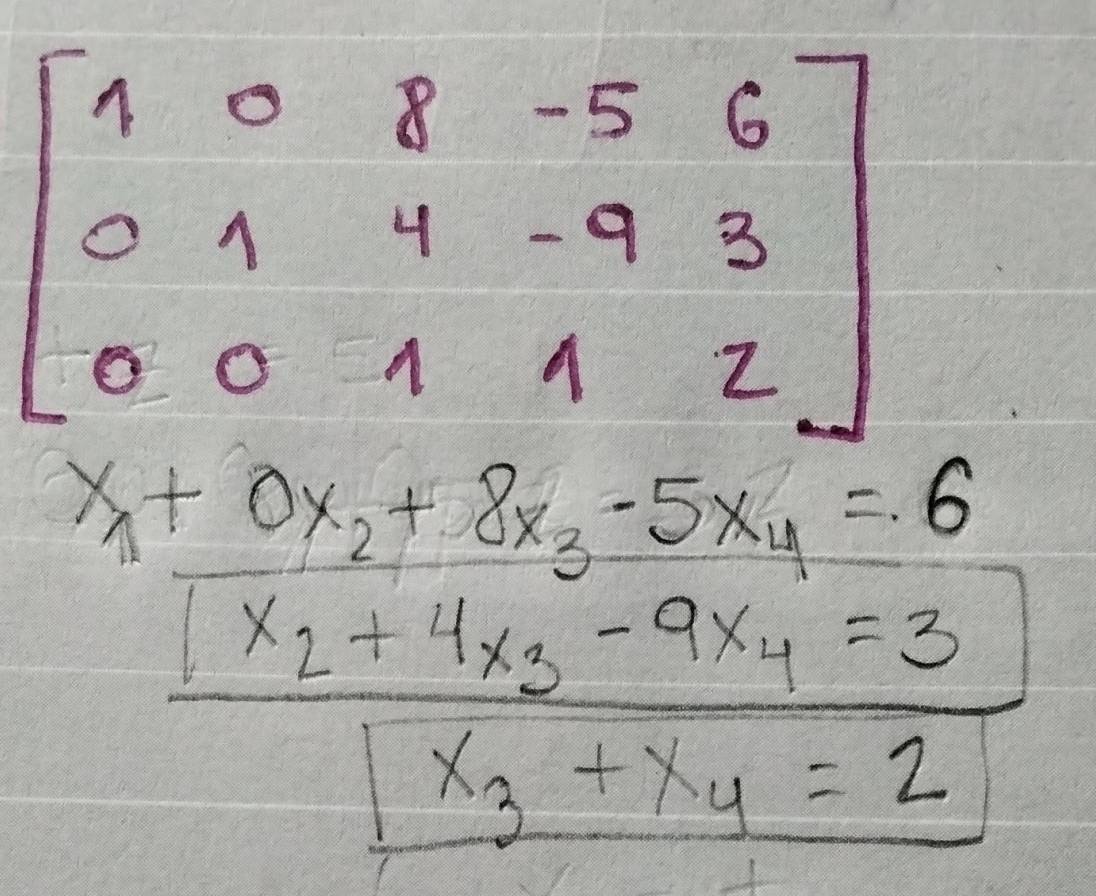 1 0 8 -5 6
0 1 4 -9 3
0 0 1 1 2
x₁ + 0x₂ + 8x₃ - 5x₄ = 6
x₂ + 4x₃ - 9x₄ = 3
x₃ + x₄ = 2